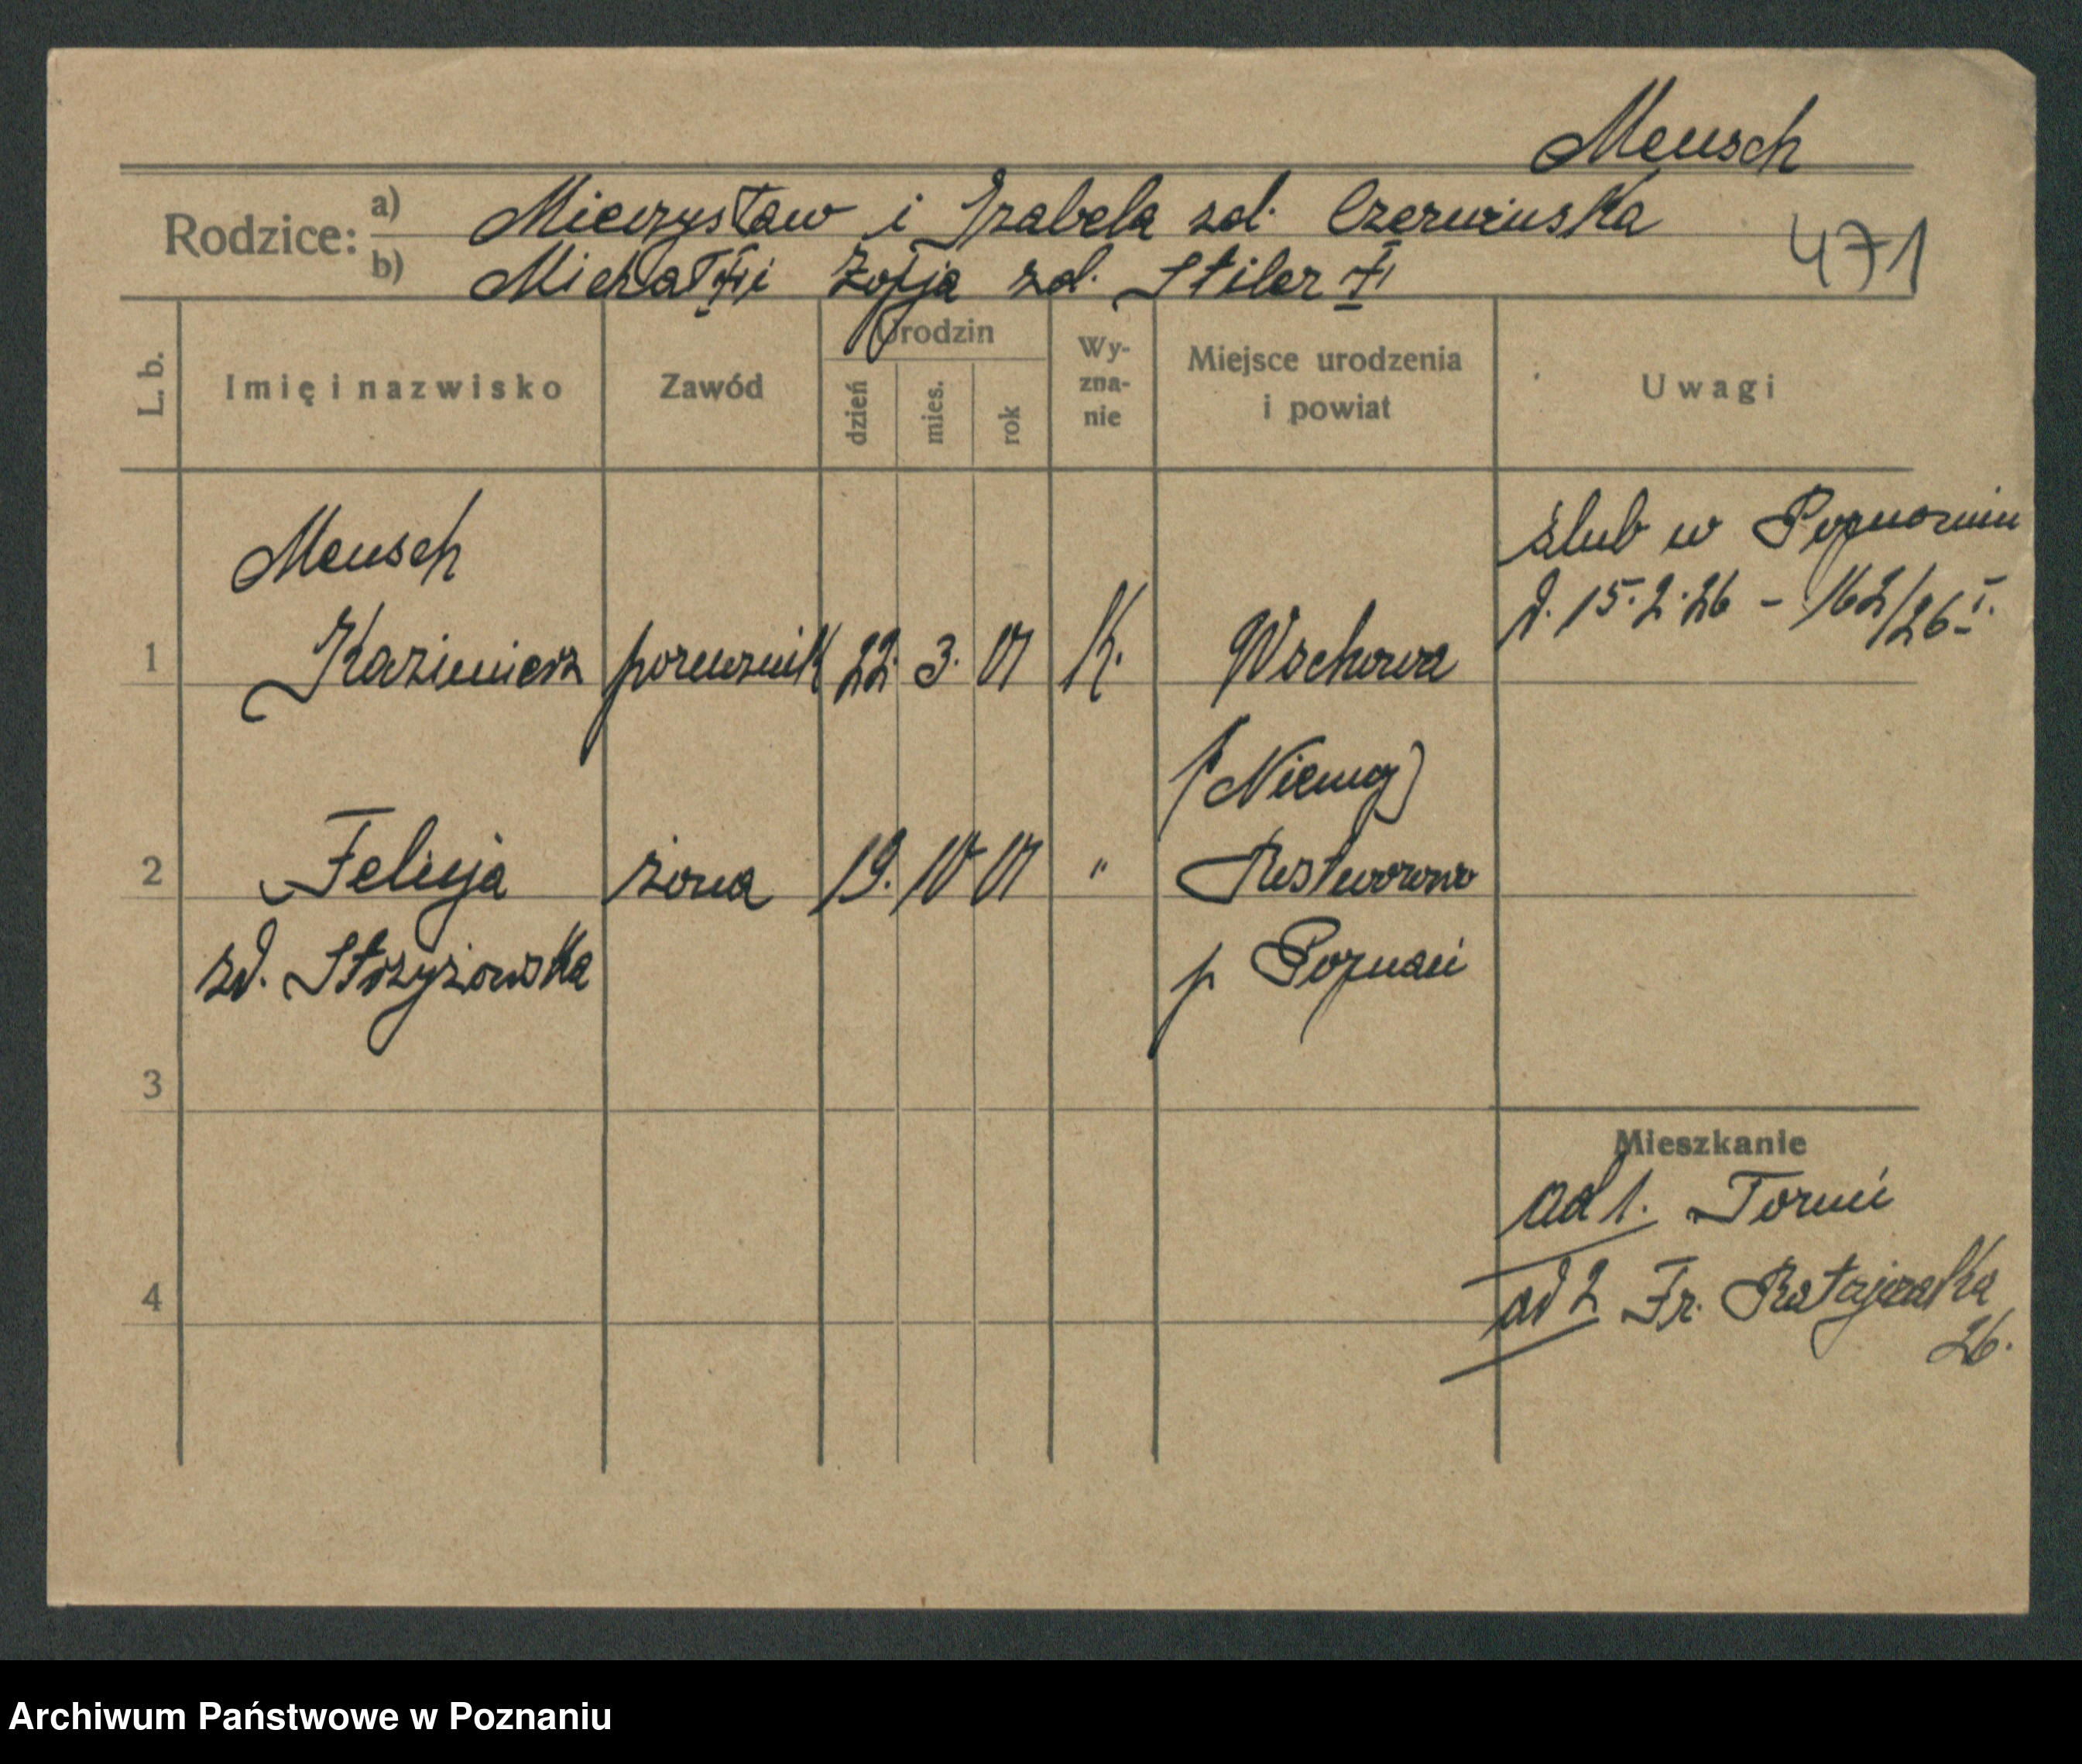 Mensch
Rodzice: a) Mieczysław i Izabela zd. Czerwińska
b) Michał † i Zofja zd. Stiler †
471
L. b.
Imię i nazwisko
Zawód
Urodzin
dzień
mies.
rok
Wy-
zna-
nie
Miejsce urodzenia
i powiat
Uwagi
Mensch
1 Kazimierz porucznik 22. 3. 01 K. Wschowa
ślub w Poznaniu
d. 15.2.26 – 162/26 I.
(Niemcy)
2 Felicja żona 19. 10 01 "
zd. Strzyżowska
p Poznań
3
Mieszkanie
ad 1. Toruń
4
ad 2 Fr. Ratajczaka
26.
Archiwum Państwowe w Poznaniu